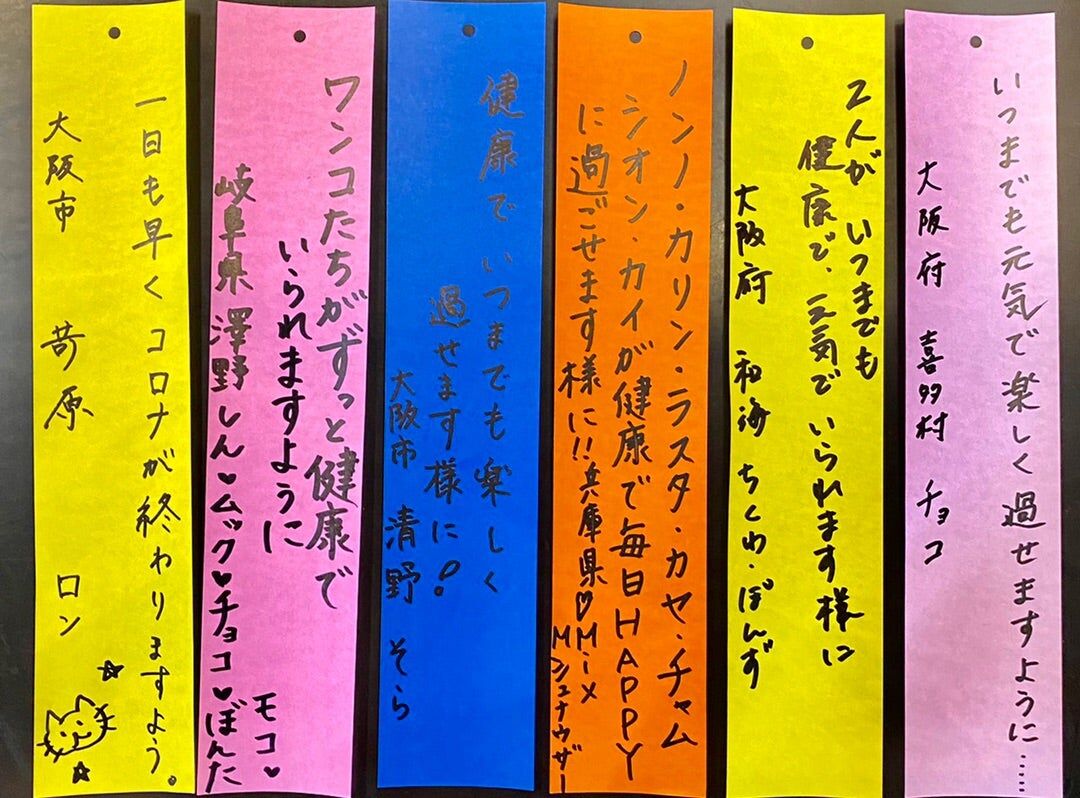 いつまでも元気で楽しく過せますように……
大阪府 喜多村 チョコ
2人が いつまでも
健康で、元気で いられます様に
大阪府 和海 ちくわ・ぽんず
ノンノ・カリン・ラスタ・カヤ・チャム
シオン・カイが健康で毎日HAPPY
に過ごせます様に!! 兵庫県♡Mix
Mシュナウザー
健康でいつまでも楽しく
過せます様に!
大阪市 清野 そら
ワンコたちがずっと健康で
いられますように
岐阜県 澤野しん♥ムック♥チョコ♥ぼんた
モコ♥
一日も早くコロナが終わりますよう。
大阪市 苛原 ロン